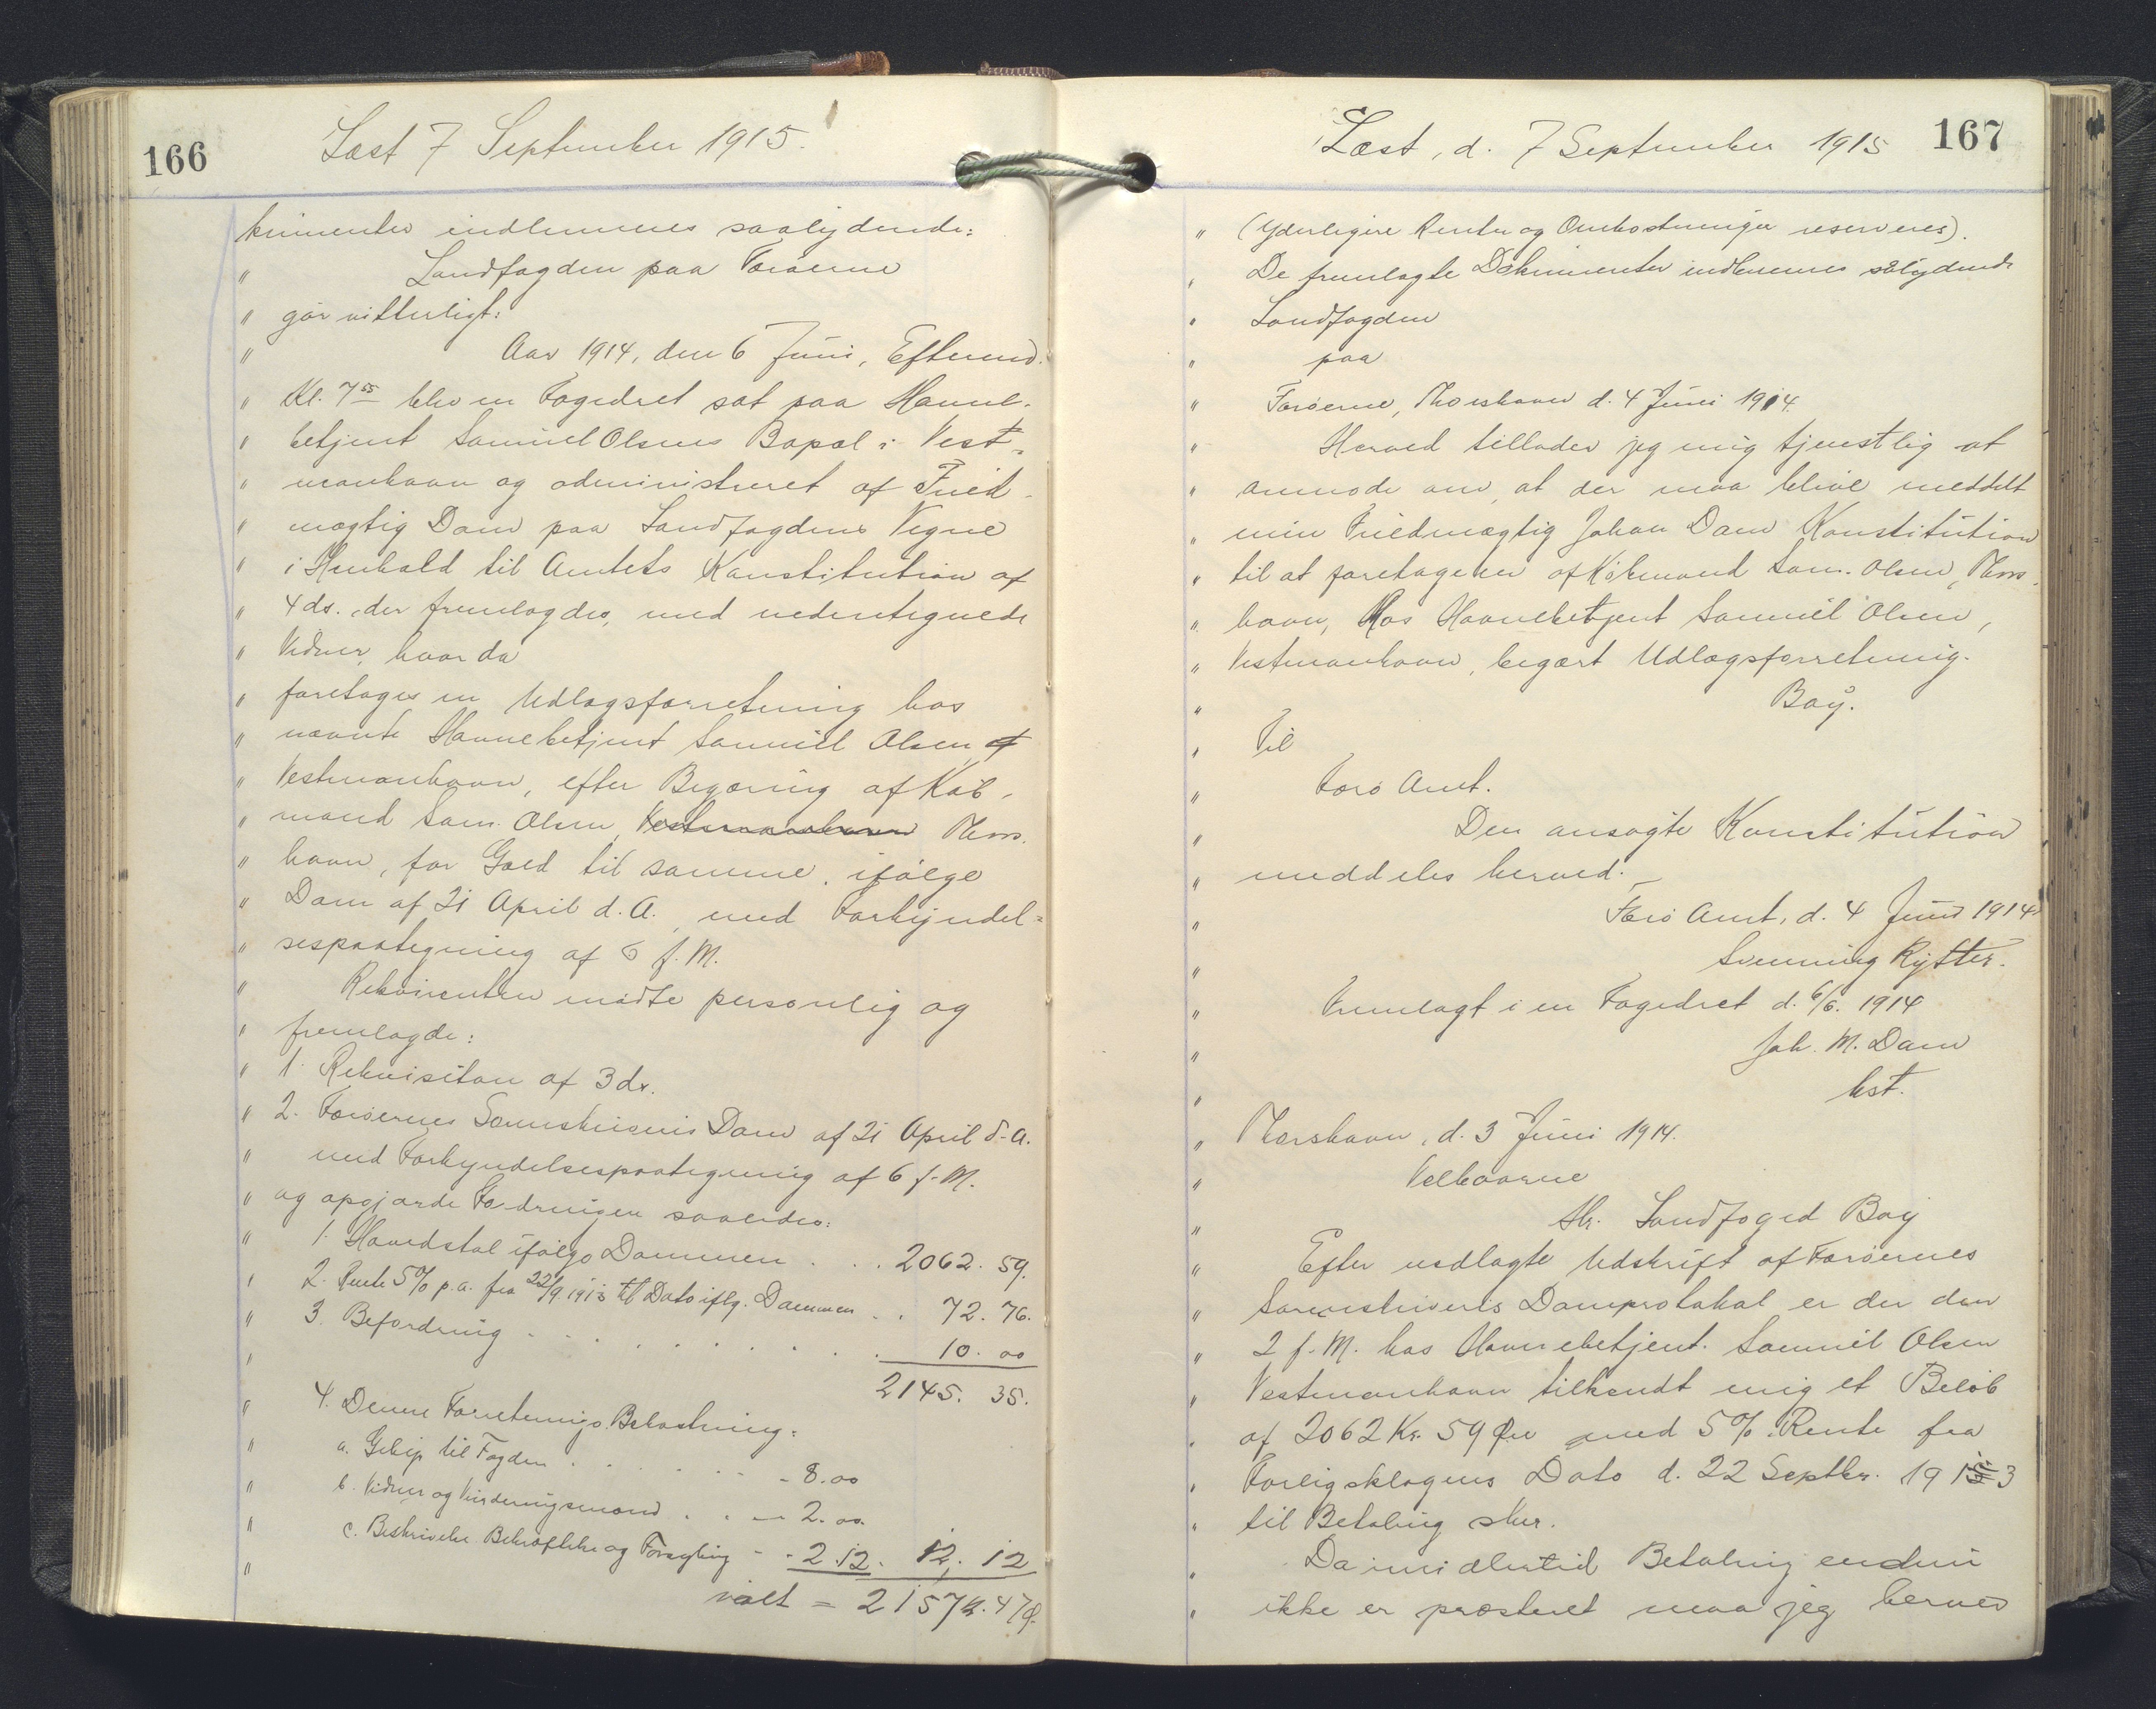 166
Læst 7 September 1915.
kumenter indlemmes saalydende:
" Landfogden paa Færøerne
" gør vitterligt:
" Aar 1914, den 6 Juni, Eftermd.
" Kl. 7 55 blev en Fogedret sat paa Havne-
" betjent Samuel Olsens Bopæl i Vest-
" manhavn og administreret af Fuld-
" mægtig Dam paa Landfogdens Vegne
" i Henhold til Amtets Konstitution af
" 4 ds. der fremlagdes, med undertegnede
" Vidner, hvor da
" foretages en Udlægsforretning hos
" nævnte Havnebetjent Samuel Olsen, af
" Vestmanhavn, efter Begæring af Køb-
" mand Sam. Olsen, Vestmanhavn Thors-
" havn, for Gæld til samme, ifølge
" Dom af 21 April d. A., med Forkyndel-
" sespaategning af 6 f. M.
" Rekvirenten mødte personlig og
" fremlagde:
" 1. Rekvisition af 3 ds.
" 2. Færøernes Sorenskriveris Dom af 21 April d. A.
" med Forkyndelsespaategning af 6 f. M.
" og opgjorde Fordringen saaledes:
" 1. Hovedstol ifølge Dommen . . . 2062. 59.
" 2. Rente 5% p.a. fra 22/9 1913 til Dato iflg. Dommen . . 72. 76.
" 3. Befordring . . . . . . . . 10. 00
2145. 35.
" 4. Denne Forretnings Bekostning:
" a. Gebyr til Fogden . . . . . . - 8. 00
" b. Vidner og Vurderingsmænd . . - 2. 00.
" c. Beskrivelse Bekræftelse og Forsegling - - 2. 12. 12. 12
" ialt = 2157 Kr. 47 Ø.
167
Læst, d. 7 September 1915
" (Yderligere Renter og Omkostninger reserveres).
" De fremlagte Dokumenter indlemmes sålydende
" Landfogden
" paa
" Færøerne, Thorshavn d. 4 Juni 1914.
" Herved tillader jeg mig tjenstlig at
" anmode om, at der maa blive meddelt
" min Fuldmægtig Johan Dam Konstitution
" til at foretage en af Købmand Sam. Olsen, Thors-
" havn, Hos Havnebetjent Samuel Olsen,
" Vestmanhavn, begært Udlægsforretning.
" Bay.
" Til
" Færø Amt.
" Den ansøgte Konstitution
" meddeles herved.
" Færø Amt, d. 4 Juni 1914
" Svenning Rytter.
" Fremlagt i en Fogedret d. 6/6. 1914
" Joh. M. Dam
" kst.
" Thorshavn, d. 3 Juni 1914.
" Velbaarne
" Hr. Landfoged Bay
" Efter vedlagte Udskrift af Færøernes
" Sorenskriveris Domprotokol er der den
" 2 f. M. hos Havnebetjent Samuel Olsen
" Vestmanhavn tilkendt mig et Beløb
" af 2062 Kr. 59 Øre med 5% Rente fra
" Forligsklagens Dato d. 22 Septbr. 1913
" til Betaling sker.
" Da imidlertid Betaling endnu
" ikke er præsteret maa jeg herved